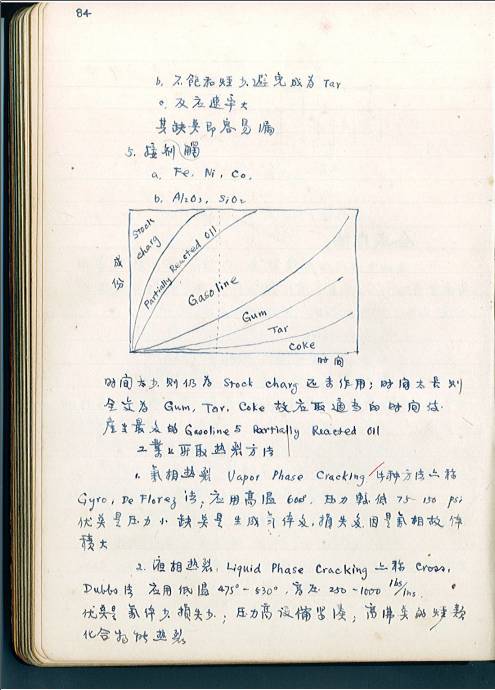 84
b. 不飽和烴少避免成為 Tar
c. 反应速率大
其缺臭即容易漏
5. 接触剤
a. Fe, Ni, Co,
b. Al2O3, SiO2
Stock charg
Partially Reacted Oil
Gasoline
Gum
Tar
Coke
成份
时间
时间太少則仍为 Stock charg 远未作用; 时间太長則
全变为 Gum, Tar, Coke 故应取適当的时间使
産生最多的 Gasoline 与 Partially Reacted Oil
工業上所取热裂方法
1. 氣相热裂 Vapor Phase Cracking 此种方法亠称
Gyro, De Florez 法, 应用高温 600°. 压力較低 75–150 psi
优臭是压力小缺臭是生成气体多, 損失多因是氣相故体
積大
2. 液相热裂, Liquid Phase Cracking 亠称 Cross,
Dubbs 法 应用低温 475°–530°, 高压 250–1000 lbs/ins.
优臭是氣体少損失少; 压力高設備; 高沸臭的烴類
化合物 热裂